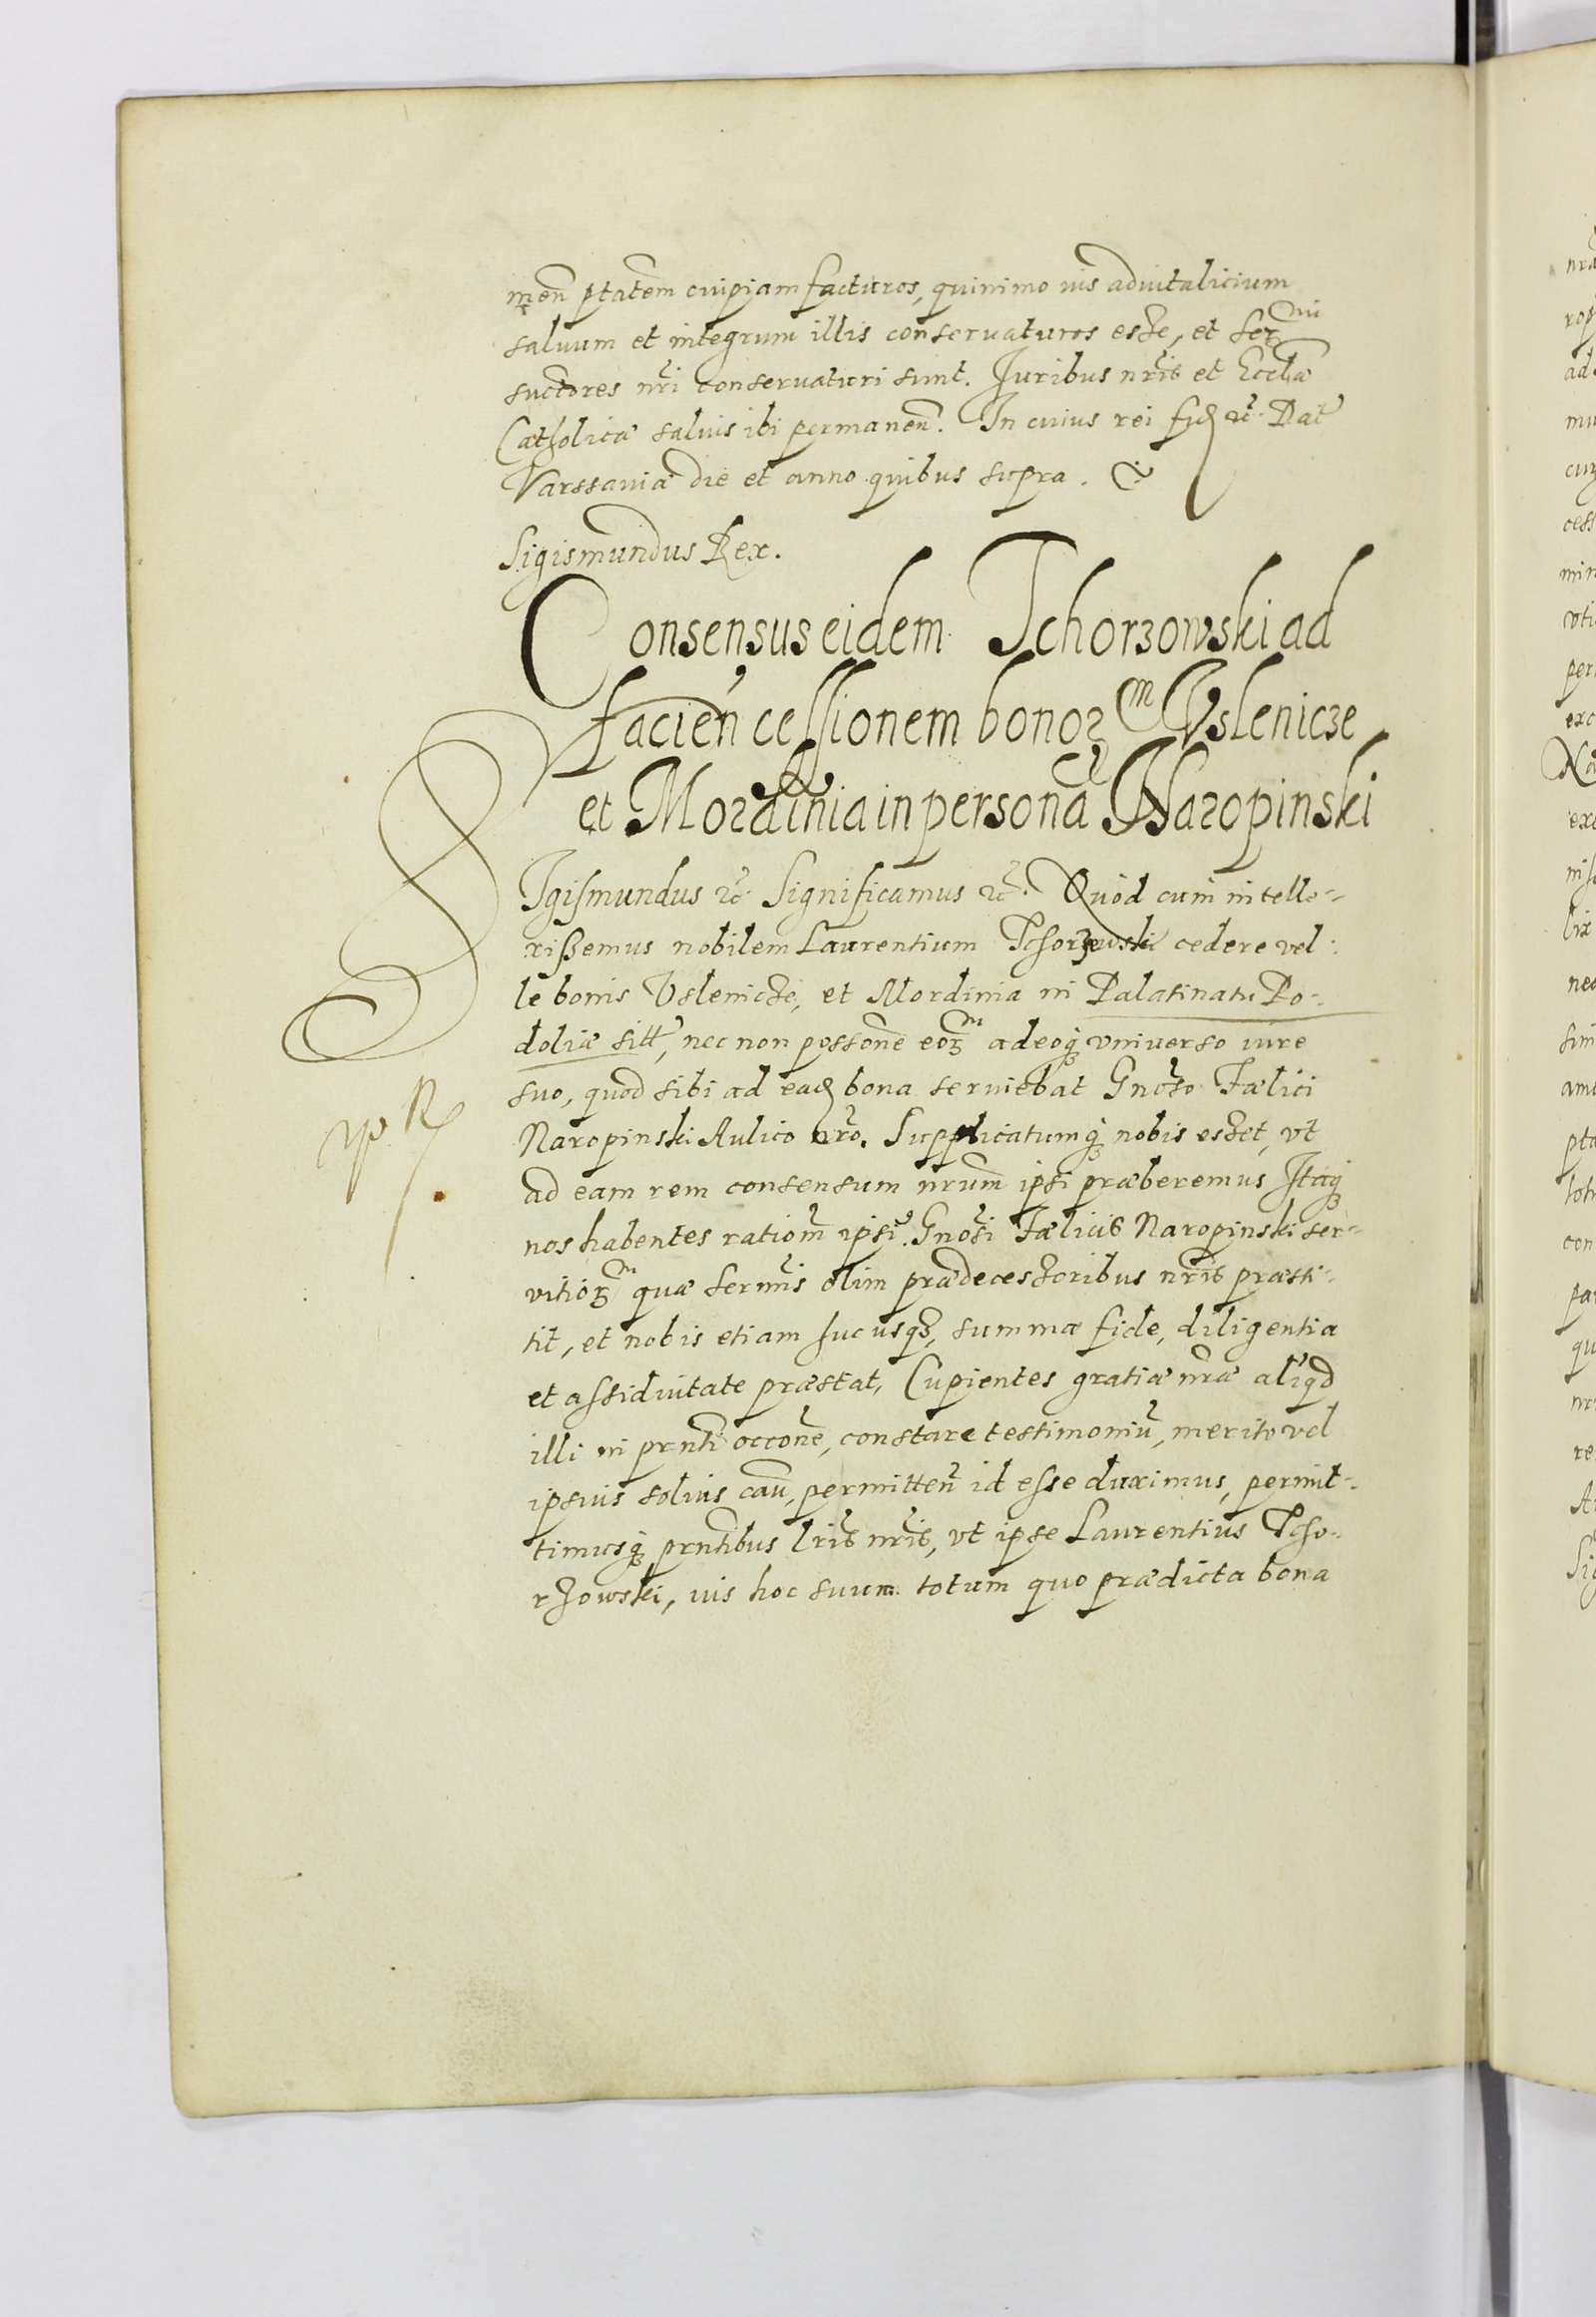 men ptatem cuipiam facturos, quinimo ius aduitalicium
saluum et integrum illis conseruaturos esse, et ser^mi
suctores nri conseruaturi sunt. Juribus nris et Ecclae
Catholicae saluis ibi permanen. In cuius rei fid etc. Dat
Varssauiae die et anno quibus supra.
Sigismundus Rex.
Consensus eidem Tchorzowski ad
facien cessionem bonor^m Vslenicze
et Mordinia in persona Naropinski
SIgismundus etc. Significamus etc. Quod cum intelle-
xissemus nobilem Laurentium Tchorzewski cedere vel-
le bonis Vslenicze, et Mordinia in Palatinatu Po-
doliae sitt, nec non possone eor^m adeoq vniuerso iure
suo, quod sibi ad ead bona seruiebat Gnoso Faelici
Naropinski Aulico nro. Supplicatumq nobis esset, vt
ad eam rem consensum nrum ipsi praeberemus Itaq
nos habentes rationm ipsi Gnosi Faelicis Naropinski ser-
vitior^m quae sermis olim praedecessoribus nris praesti-
tit, et nobis etiam hucusq, summa fide, diligentia
et assiduitate praestat, Cupientes gratiae nrae aliqd
illi in prnti occone, constare testimoniu, merito vel
ipsius solius cau, permitten id esse duximus, permit-
timusq prntibus lris nris, vt ipse Laurentius Tcho-
rzowski, ius hoc suum totum quo praedicta bona